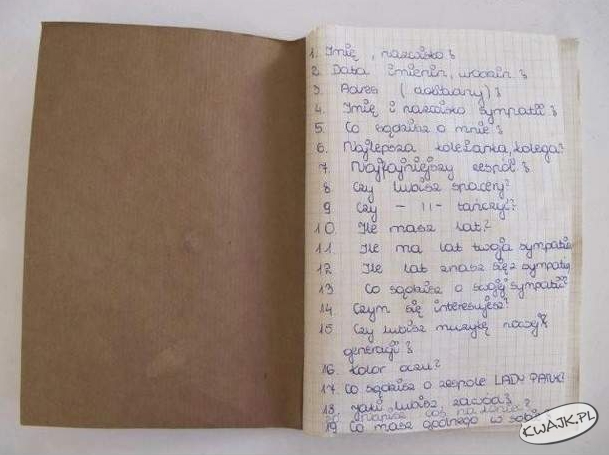 1. Imię, nazwisko?
2. Data imienin, urodzin?
3. Adres (dokładny)?
4. Imię i nazwisko sympatii?
5. Co sądzisz o mnie?
6. Najlepsza koleżanka, kolega?
7. Najfajniejszy zespół?
8 Czy lubisz spacery?
9 Czy - 11 - tańczyć?
10. Ile masz lat?
11. Ile ma lat twoja sympatia
12 Ile lat znasz się z sympatią
13 Co sądzisz o swojej sympatii?
14 Czym się interesujesz?
15 Czy lubisz muzykę nowej
generacji?
16. Kolor oczu?
17. Co sądzisz o zespole LADY PANK?
18 Jaki lubisz zawód?
na koniec?
19 Co masz godnego w sobie
KWAJK.PL